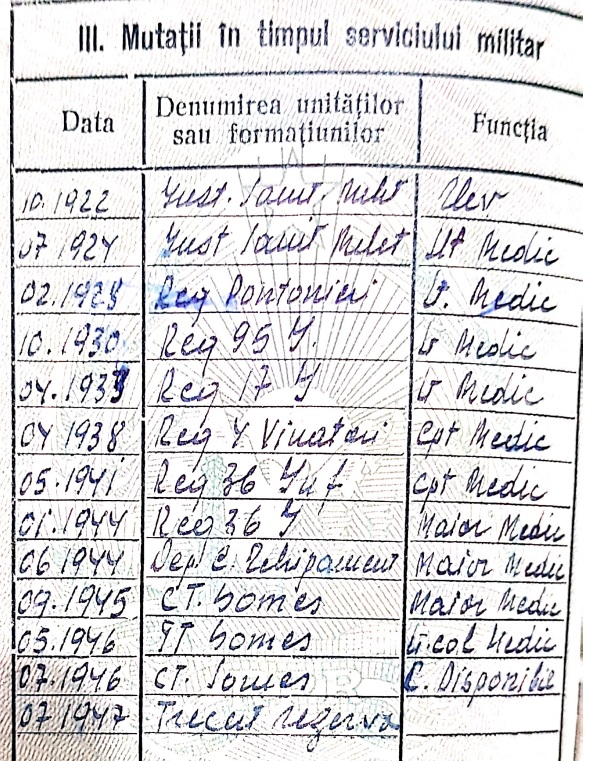 III. Mutații în timpul serviciului militar
Data Denumirea unităților sau formațiunilor Funcția
10.1922 Inst. Sanit. Milit Elev
07 1924 Inst Sanit Milit Slt Medic
02.1928 Reg Pontonieri Lt. Medic
10.1930 Reg 95 I. Lt Medic
04.193 Reg 17 I Lt Medic
04 1938 Reg 4 Vinatori Cpt Medic
05.1941 Reg 36 Inf Cpt Medic
01.1944 Reg 36 I Maior Medic
06 1944 Dep. C. Echipament Maior Medic
09.1945 CT. Somes Maior Medic
05.1946 TT Somes Lt. col Medic
07.1946 CT. Somes C. Disponibil
07 1947 Trecut rezerva